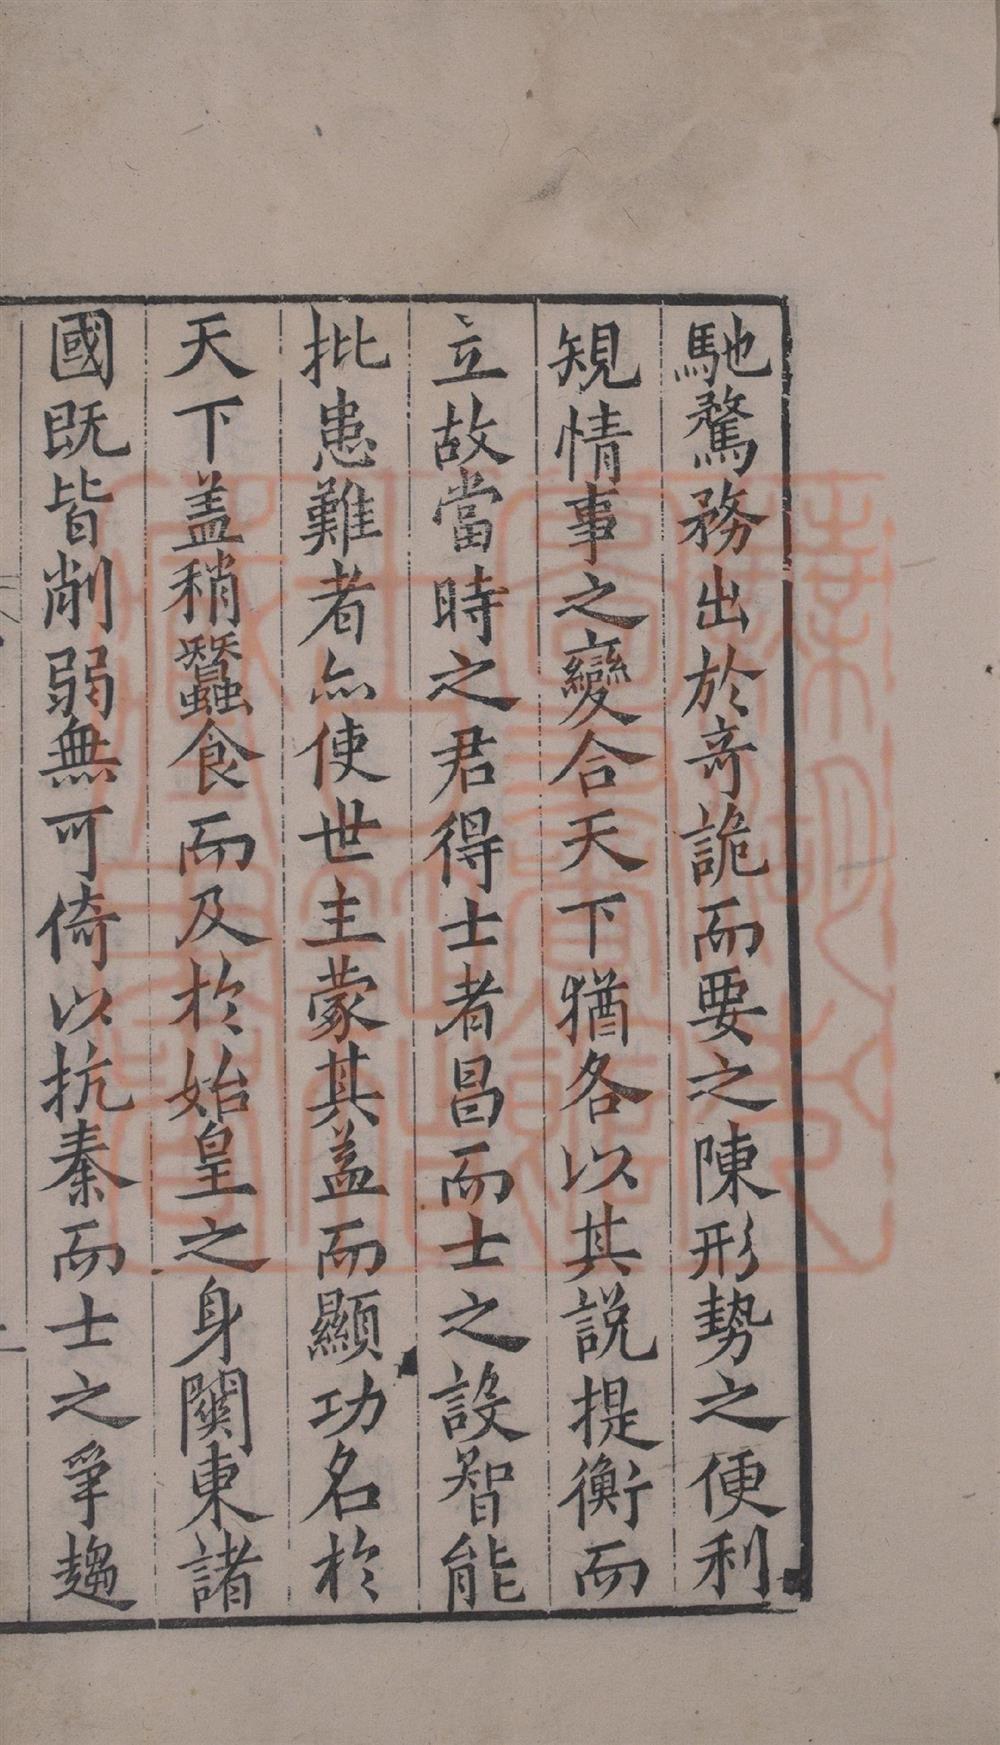 馳騖務出於竒詭而要之陳形勢之便利
䂓情事之變合天下猶各以其說提衡而
立故當時之君得士者昌而士之設智能
批患難者亦使世主蒙其益而顯功名於
天下盖稍蠶食而及於始皇之身關東諸
國既皆削弱無可倚以抗秦而士之爭趨